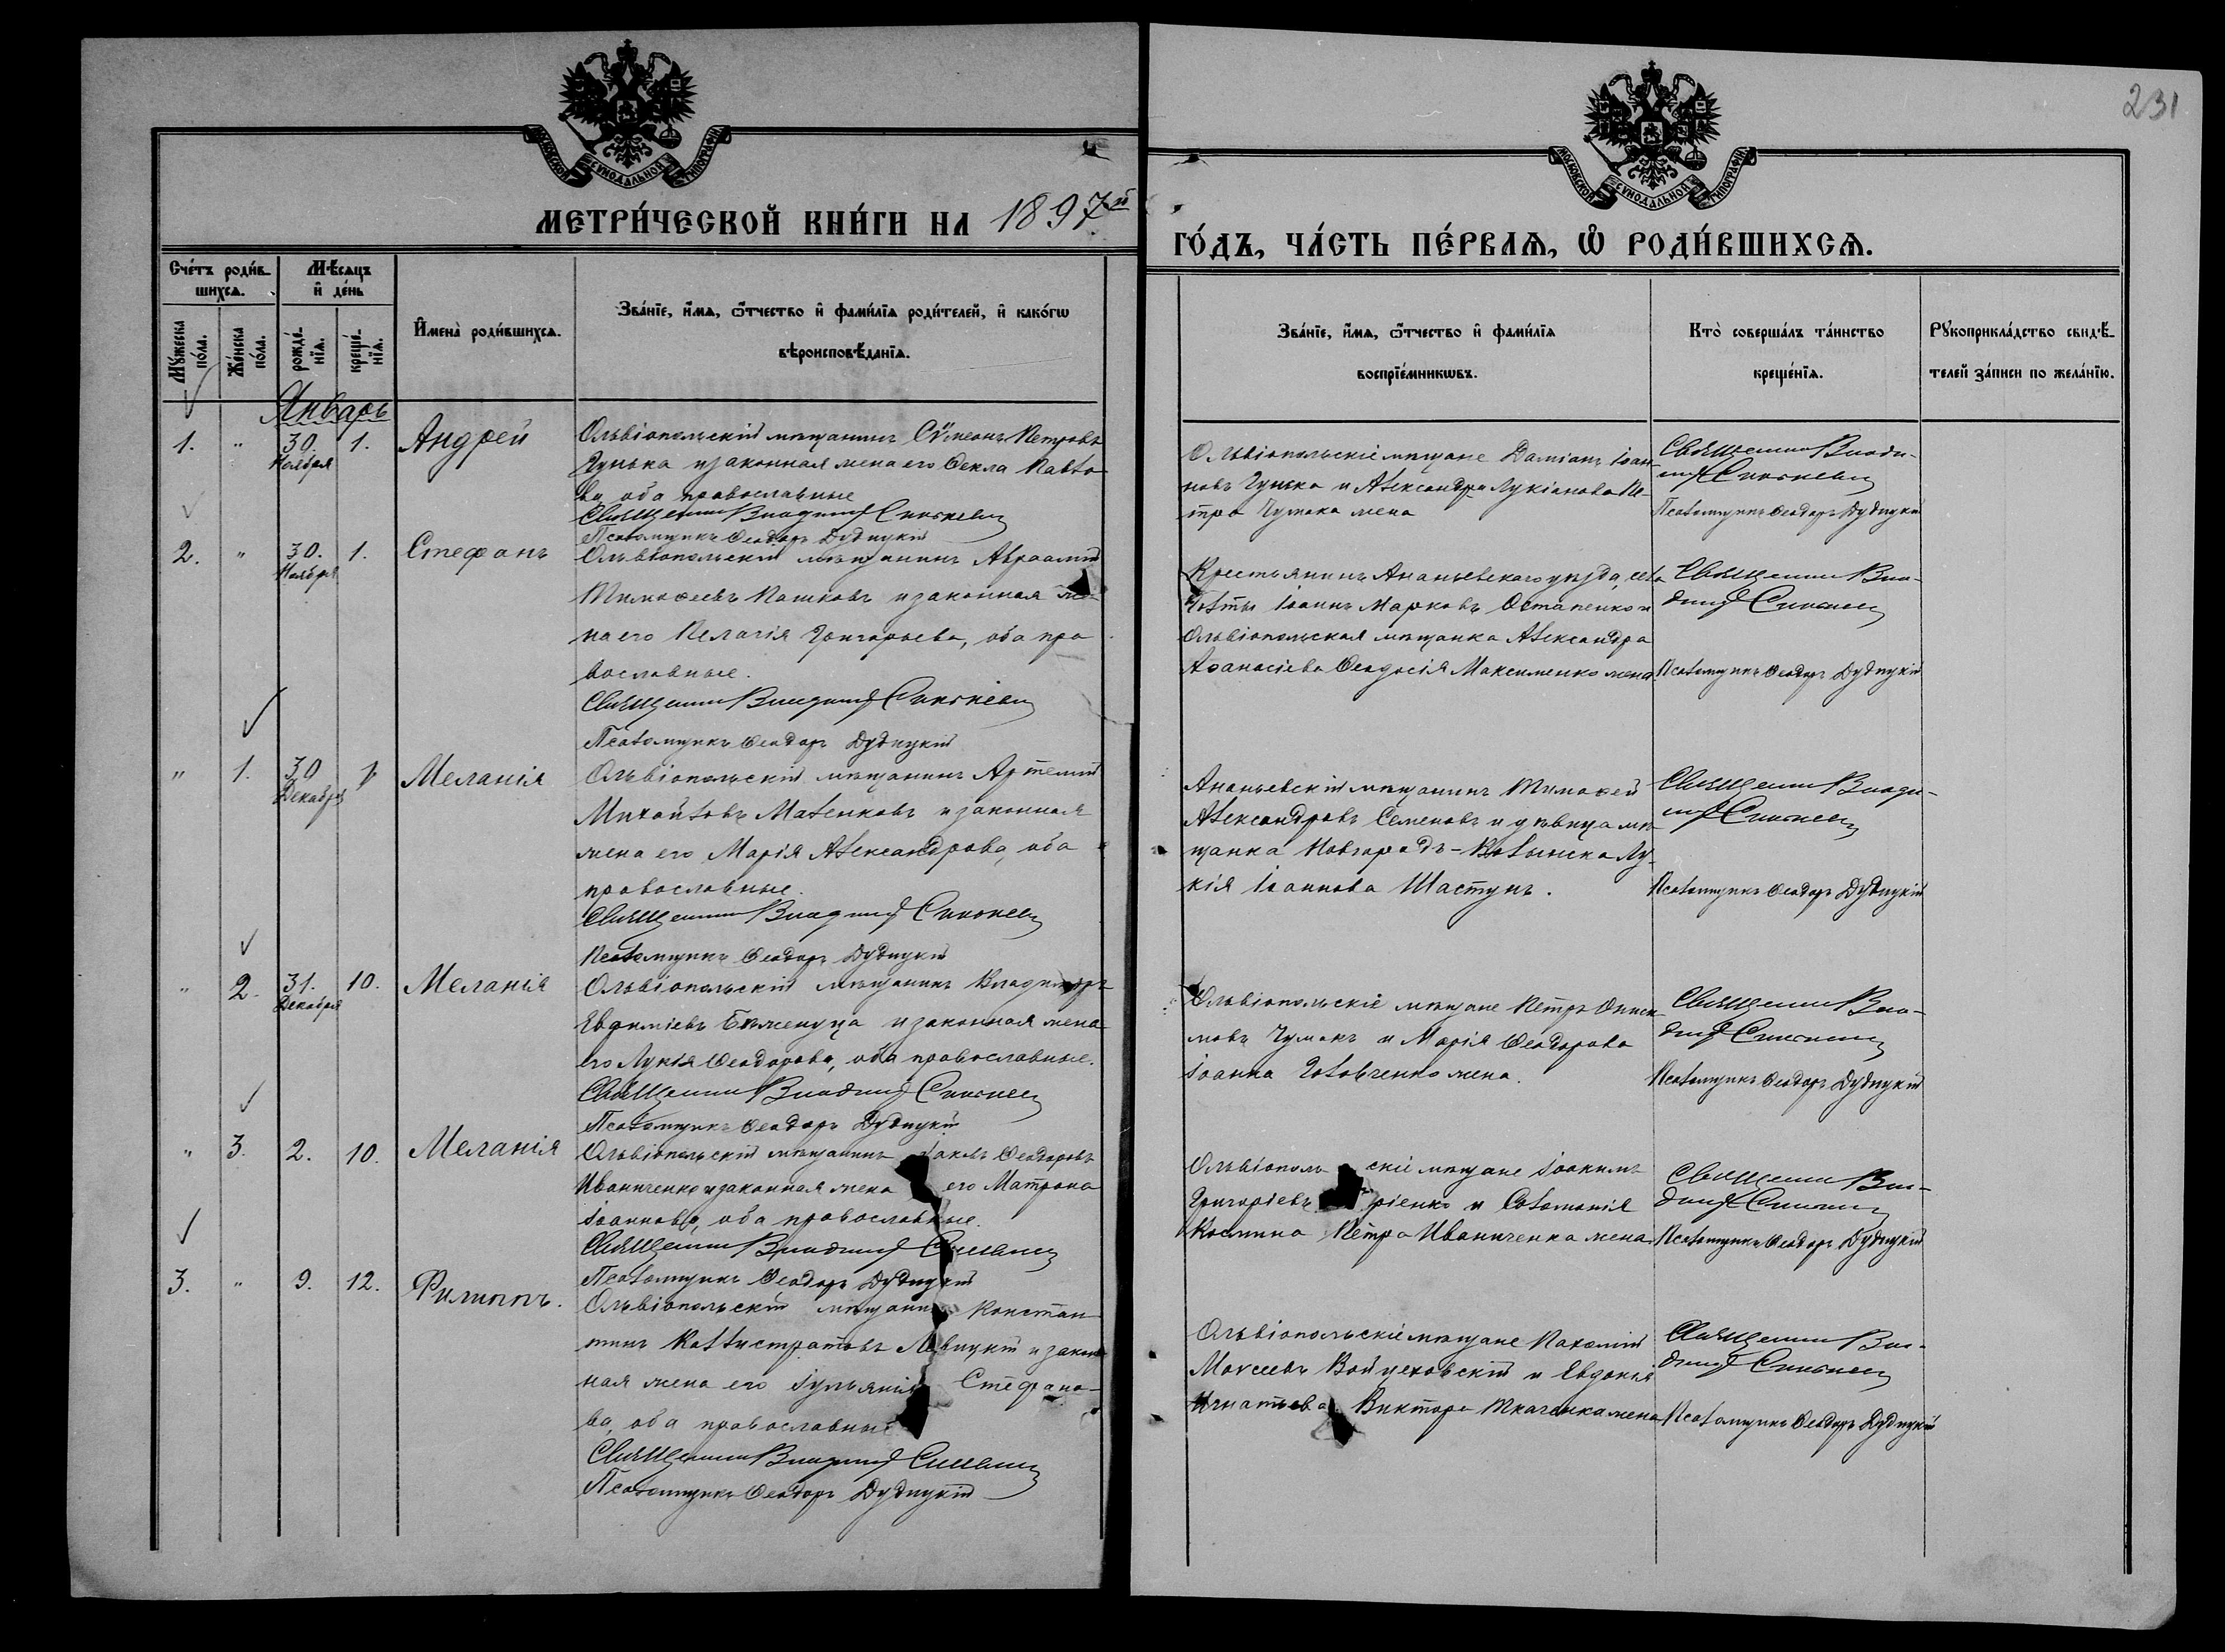 231
МОСКОВСКОЙ СѴНОДАЛЬНОЙ ТИПОГРАФІИ
МОСКОВСКОЙ СѴНОДАЛЬНОЙ ТИПОГРАФІИ
МЕТРИ́ЧЕСКОЙ КНИ́ГИ НА 1897й
ГО́ДЪ, ЧА́СТЬ ПЕ́РВАѦ, Ѽ РОДИ́ВШИХСѦ.
Сче́тъ роди́в-
шихсѧ.
Мѣ́сѧцъ
и҆ де́нь
Мꙋ́жеска
по́ла.
Же́нска
по́ла.
рожде́-
нїѧ.
креще́-
нїѧ.
И҆мена̀ роди́вшихсѧ.
Зва́нїе, и҆́мѧ, ѻ҆́тчество и҆ фами́лїѧ роди́телей, и҆ како́гѡ
вѣроисповѣ́данїѧ.
Зва́нїе, и҆́мѧ, ѻ҆́тчество и҆ фами́лїѧ
воспрїе́мникѡвъ.
Кто̀ соверша́лъ та́инство
креще́нїѧ.
Рꙋкоприкла́дство свидѣ́-
телей за́писи по жела́нїю.
Январь
1. " 30. Ноября 1. Андрей
Ольвіопольскій мѣщанинъ Сѵмеонъ Петровъ
Гунька и законная жена его Ѳекла Павло-
ва, оба православные
Священникъ Владиміръ
Псаломщикъ Ѳеодоръ Дудницкій
Ольвіопольскіе мѣщане Даміанъ Іоан-
новъ Гунька и Александра Лукіанова Пе-
тра Чумака жена
Священникъ Влади-
міръ
Псаломщикъ Ѳеодоръ Дудницкій
2. " 30. Ноября 1. Стефанъ
Ольвіопольскій мѣщанинъ Авраамій
Тимоѳеевъ Пашковъ и законная же-
на его Пелагія Григорьева, оба пра-
вославные.
Священникъ Владиміръ
Псаломщикъ Ѳеодоръ Дудницкій
Крестьянинъ Ананьевскаго уѣзда, села
Іоаннъ Марковъ Остапенко и
Ольвіопольская мѣщанка Александра
Аѳанасіева Ѳеодосія Максименко жена
Священникъ Вла-
диміръ
Псаломщикъ Ѳеодоръ Дудницкій
" 1. 30 Декабря 1 Меланія
Ольвіопольскій мѣщанинъ Артемій
Михайловъ Маленковъ и законная
жена его Марія Александрова, оба
православные.
Священникъ Владиміръ
Псаломщикъ Ѳеодоръ Дудницкій
Ананьевскій мѣщанинъ Тимоѳей
Александровъ Семеновъ и дѣвица мѣ-
щанка Новгородъ-Волынска Лу-
кія Іоаннова Шастунъ.
Священникъ Влади-
міръ
Псаломщикъ Ѳеодоръ Дудницкій
" 2. 31. Декабря 10. Меланія
Ольвіопольскій мѣщанинъ Владиміръ
Евѳиміевъ Бѣженуца и законная жена
его Лукія Ѳеодорова, оба православные.
Священникъ Владиміръ
Псаломщикъ Ѳеодоръ Дудницкій
Ольвіопольскіе мѣщане ПетръОниси-
мовъ Чумакъ и Марія Ѳеодорова
Іоанна Головченко жена.
Священникъ Вла-
диміръ
Псаломщикъ Ѳеодоръ Дудницкій
" 3. 2. 10. Меланія
Ольвіопольскій мѣщанинъ Ѳеодоровъ
Иваниченко и законная жена его Матрона
Іоаннова, оба православные.
Священникъ Владиміръ
Псаломщикъ Ѳеодоръ Дудницкій
Ольвіопольскіе мѣщане Іоакимъ
Григоріевъ и Соломонія
Космина Петра Иваниченка жена
Священникъ Вла-
диміръ
Псаломщикъ Ѳеодоръ Дудницкій
3. " 9. 12. Филиппъ.
Ольвіопольскій мѣщанинъ Констан-
тинъ Каллистратовъ Левицкій и закон-
ная жена его Іуліанія Стефано-
ва, оба православные
Священникъ Владиміръ
Псаломщикъ Ѳеодоръ Дудницкій
Ольвіопольскіе мѣщане Пахомій
Моѵсеевъ Войцеховскій и Евдокія
Игнатьева Виктора Ткаченка жена
Священникъ Вла-
диміръ
Псаломщикъ Ѳеодоръ Дудницкій